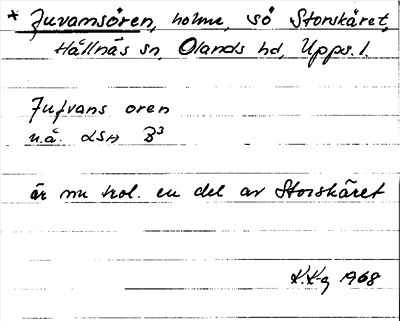 * Juvamsören, holme, sö Storskäret,
Hållnäs sn, Olands hd, Upps. l.
Jufvans oren
u.å. LSA B3
är nu trol. en del av Storskäret
K.K-g 1968